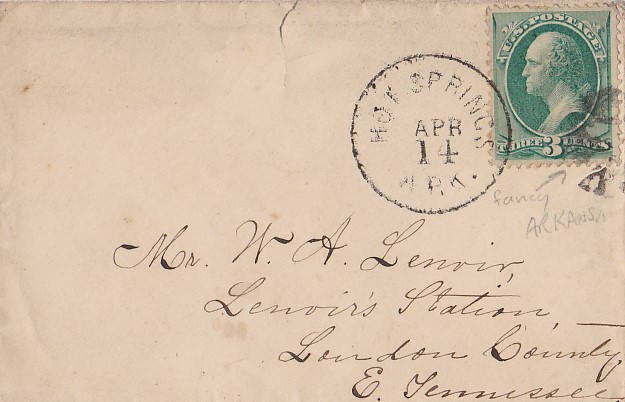 U.S. POSTAGE
THREE 3 CENTS
HOT SPRINGS
APR
14
ARK.
fancy
ARKANSA
Mr. W. A. Lenoir,
Lenoir's Station
Loudon County,
E. Tennessee.